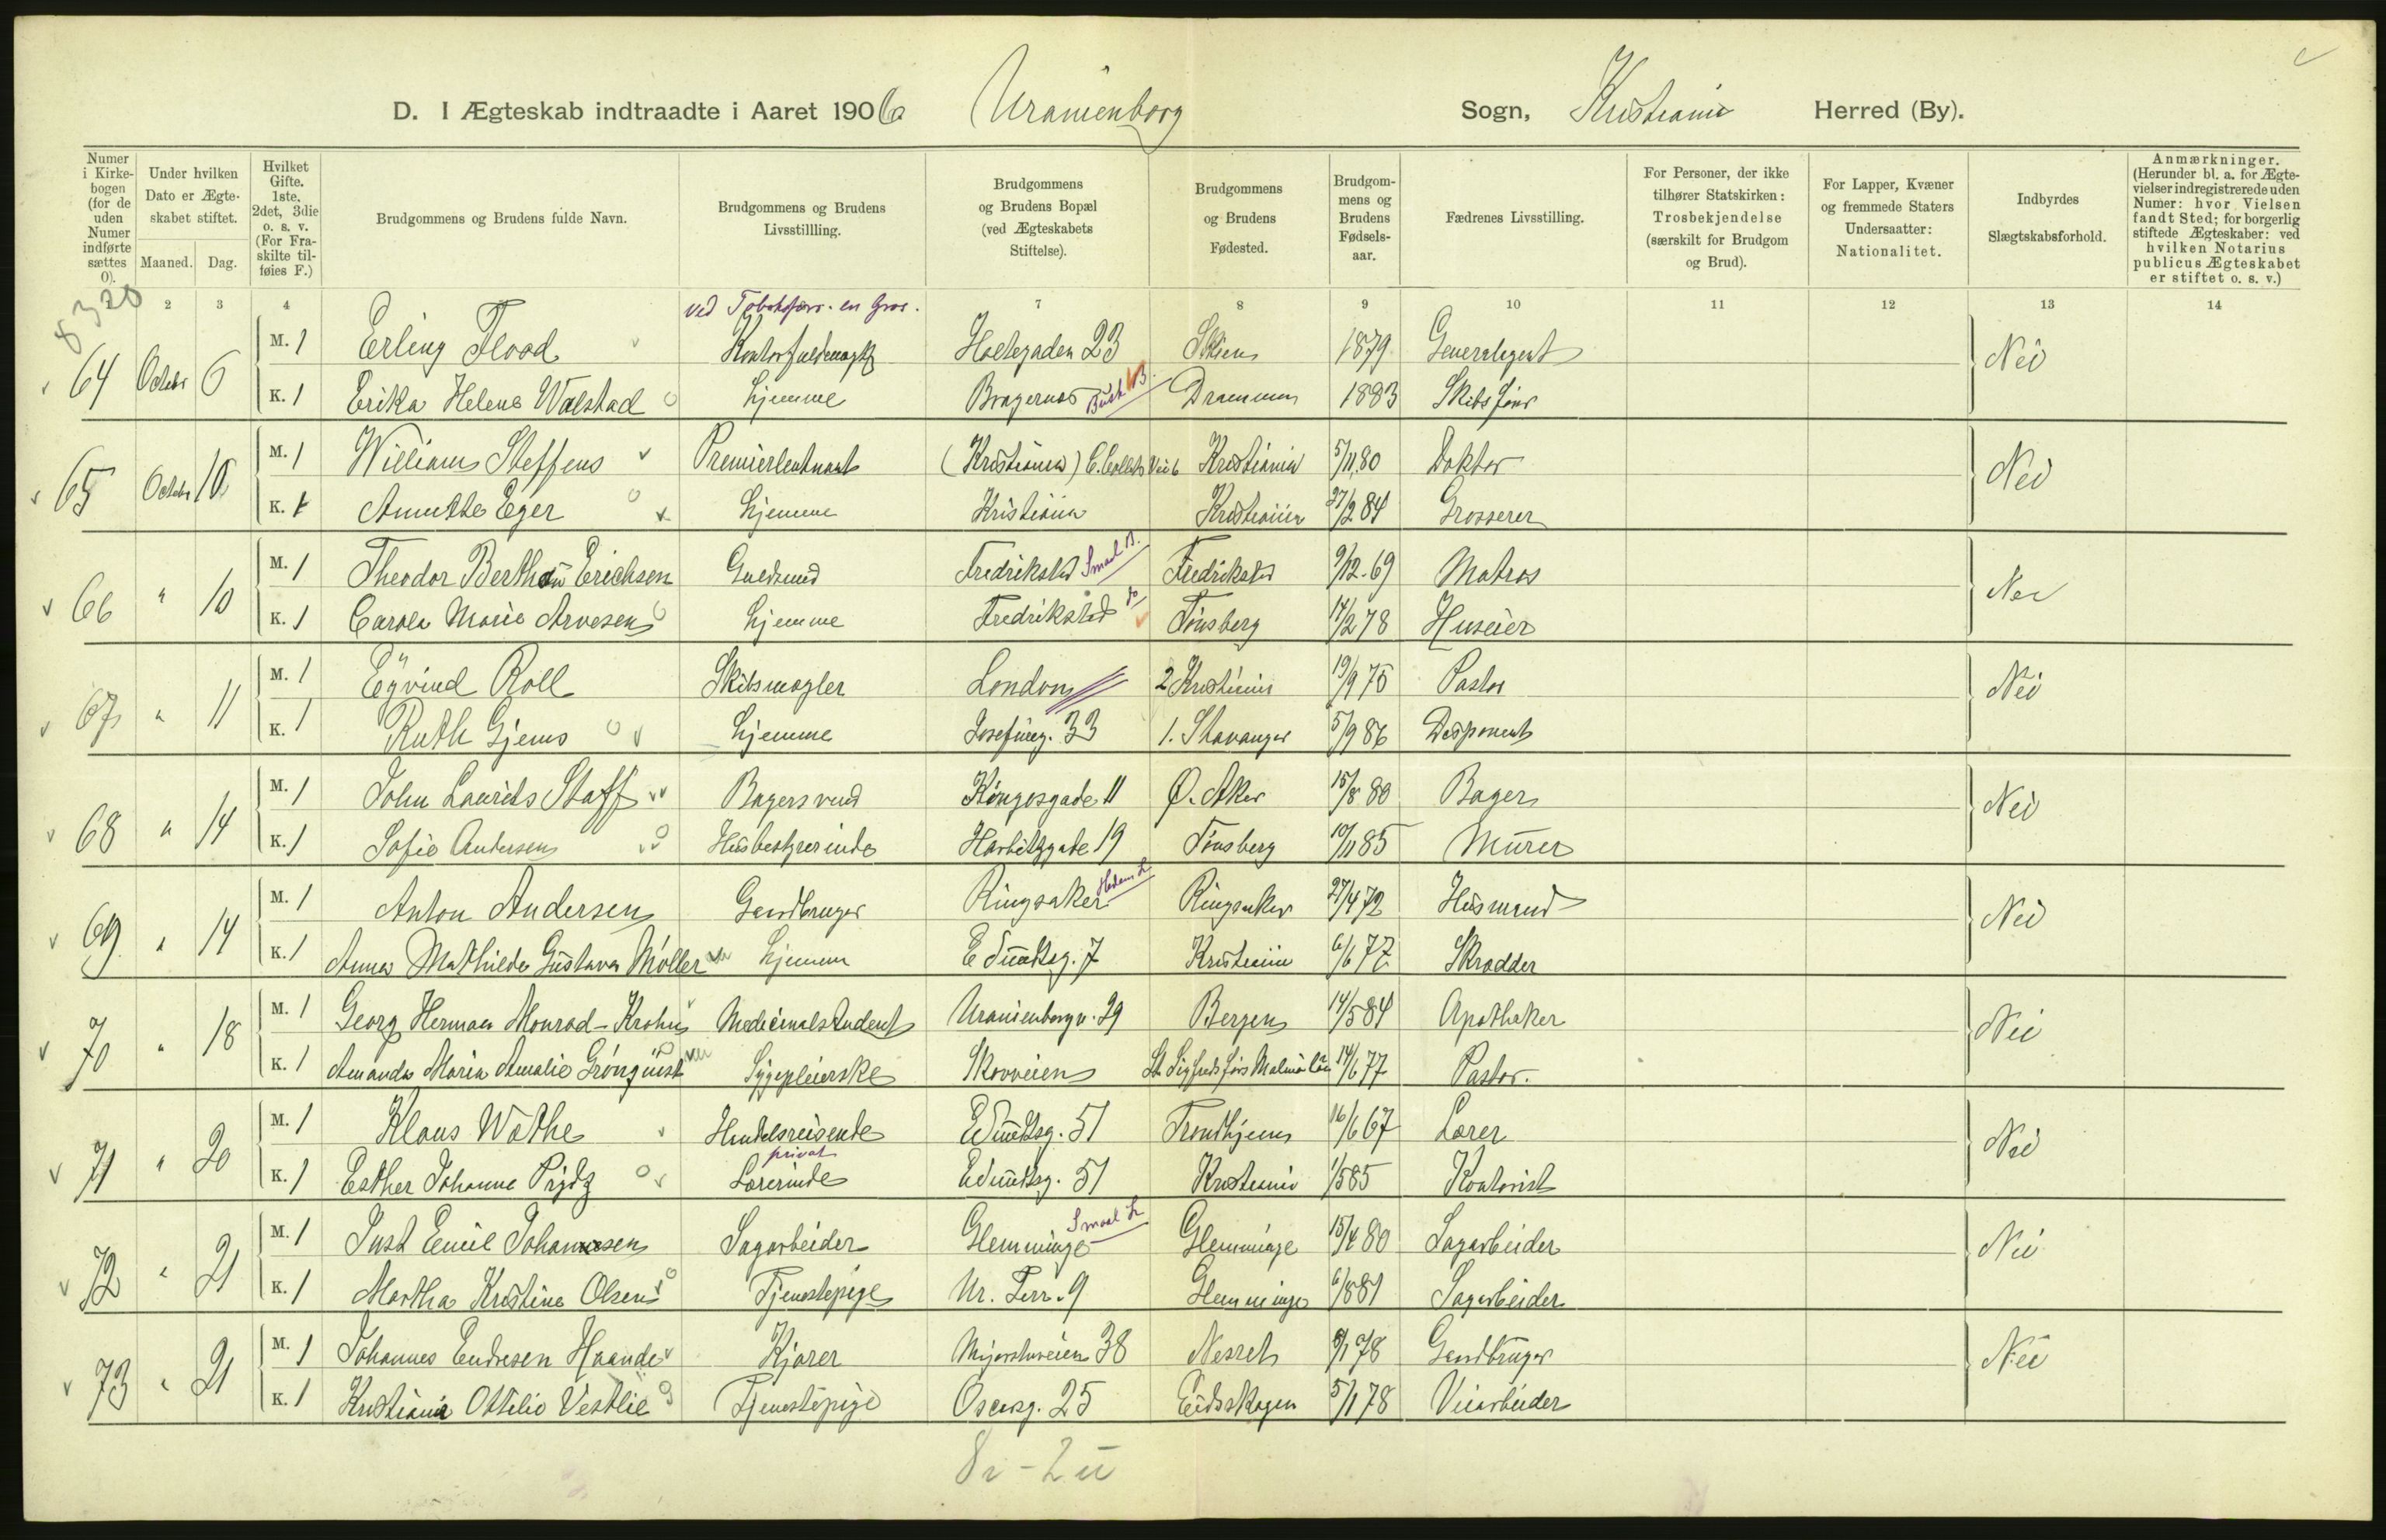 D. I Ægteskab indtraadte i Aaret 1906 Uranienborg Sogn, Kristiania Herred (By).
Numer i Kirkebogen (for de uden Numer indførte sættes 0).
Under hvilken Dato er Ægteskabet stiftet.
Maaned. Dag.
Hvilket Gifte. 1ste. 2det, 3die o. s. v. (For Fraskilte tilføies F.)
Brudgommens og Brudens fulde Navn.
Brudgommens og Brudens Livsstillling.
Brudgommens og Brudens Bopæl (ved Ægteskabets Stiftelse).
Brudgommens og Brudens Fødested.
Brudgommens og Brudens Fødselsaar.
Fædrenes Livsstilling.
For Personer, der ikke tilhører Statskirken: Trosbekjendelse (særskilt for Brudgom og Brud).
For Lapper, Kvæner og fremmede Staters Undersaatter: Nationalitet.
Indbyrdes Slægtskabsforhold.
Anmærkninger. (Herunder bl. a. for Ægtevielser indregistrerede uden Numer: hvor Vielsen fandt Sted; for borgerlig stiftede Ægteskaber: ved hvilken Notarius publicus Ægteskabet er stiftet o. s. v.)
8320 2 3 4 7 8 9 10 11 12 13 14
ved Tobaksforr. en Gros.
64 Octobr 6 M. 1 Erling Flood Kontorfuldmægt Holtegaden 23 Skien 1879 Generalagent Nei
K. 1 Erika Helene Wælstad Hjemme Bragernæs Busk B. Drammen 1883 Skibsfører
65 Octobr 10 M. 1 William Steffens Premierleutnant (Kristiania) C. Colletts Vei 6 Kristiania 5/11 80 Doktor Nei
K. 1 Annette Eger Hjemme Kristiania Kristiania 27/2 84 Grosserer
66 " 10 M. 1 Theodor Berthau Erichsen Guldsmed Fredrikstad Smaal B. Fredrikstad 9/12 69 Matros Nei
K. 1 Carola Marie Arvesen Hjemme Fredrikstad do Tønsberg 14/2 78 Huseier
67 " 11 M. 1 Eyvind Roll Skibsmægler London 2 Kristiania 19/9 75 Pastor Nei
K. 1 Ruth Gjems Hjemme Josefineg. 33 1. Stavanger 5/9 86 Disponent
68 " 14 M. 1 John Laurits Staff Bagersvend Kongosgade 11 Ø. Aker 15/8 80 Bager Nei
K. 1 Sofie Andersen Husbestyrerinde Harbitzgade 19 Tønsberg 10/11 85 Murer
69 " 14 M. 1 Anton Andersen Gardbruger Ringsaker Hedem. L. Ringsaker 27/4 72 Husmand Nei
K. 1 Anna Mathilde Gustava Møller Hjemme Eduntsg. 7 Kristiania 6/6 77 Skrædder
70 " 18 M. 1 Georg Herman Monrad-Krohn Medicinalstudent Uranienborgv. 29 Bergen 14/5 84 Apotheker Nei
K. 1 Amanda Maria Amalie Grönquist Sygepleierske Skovveien St. Sigfridsförs Malmö län 14/6 77 Pastor.
71 " 20 M. 1 Klaus Wathe Handelsreisende Eduntsg. 51 Trondhjem 16/6 67 Lærer Nei
K. 1 Esther Johanne Prydz privat Lærerinde Eduntsg. 51 Kristiania 1/5 85 Kontorist
72 " 21 M. 1 Just Emil Johannesen Sagarbeider Glemminge Smaal L. Glemminge 15/4 80 Sagarbeider Nei
K. 1 Martha Kristine Olsen Tjenestepige Ur. Terr. 9 Glemminge 6/8 81 Sagarbeider
73 " 21 M. 1 Johannes Endresen Haande Kjører Majorstuveien 38 Nesset 9/1 78 Gardbruger Nei
K. 1 Kristiania Ottilie Vestlie Tjenestepige Oscarsg. 25 Eidsskogen 5/1 78 Veiarbeider